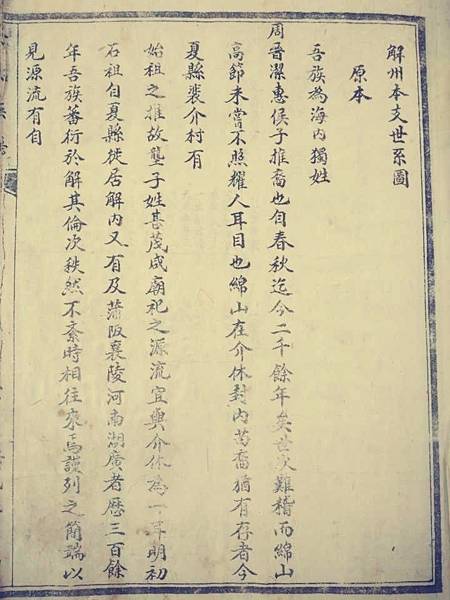 解州本支世系圖
原本
吾族為海內獨姓
周晉潔惠侯子推裔也自春秋迄今二千餘年矣世次難稽而綿山
高節未嘗不照耀人耳目也綿山在介休封內苗裔猶有存者今
夏縣裴介村有
始祖之推故壟子姓甚茂咸廟祀之源流宜與介休為一耳明初
石祖自夏縣徙居解內又有及蒲阪襄陵河南湖廣者歷三百餘
年吾族蕃衍於解其倫次秩然不紊時相往來焉謹列之簡端以
見源流有自